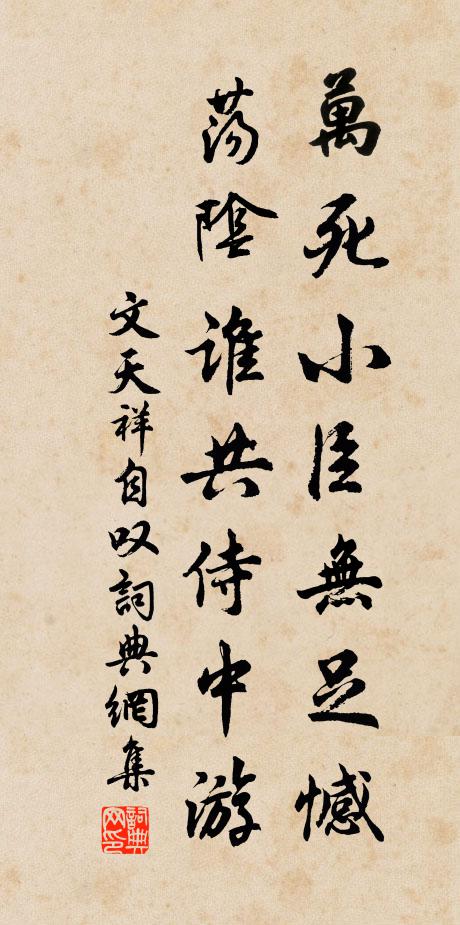 萬死小臣無足憾
蕩陰誰共侍中游
文天祥自叹詞典網集
詞典
网印